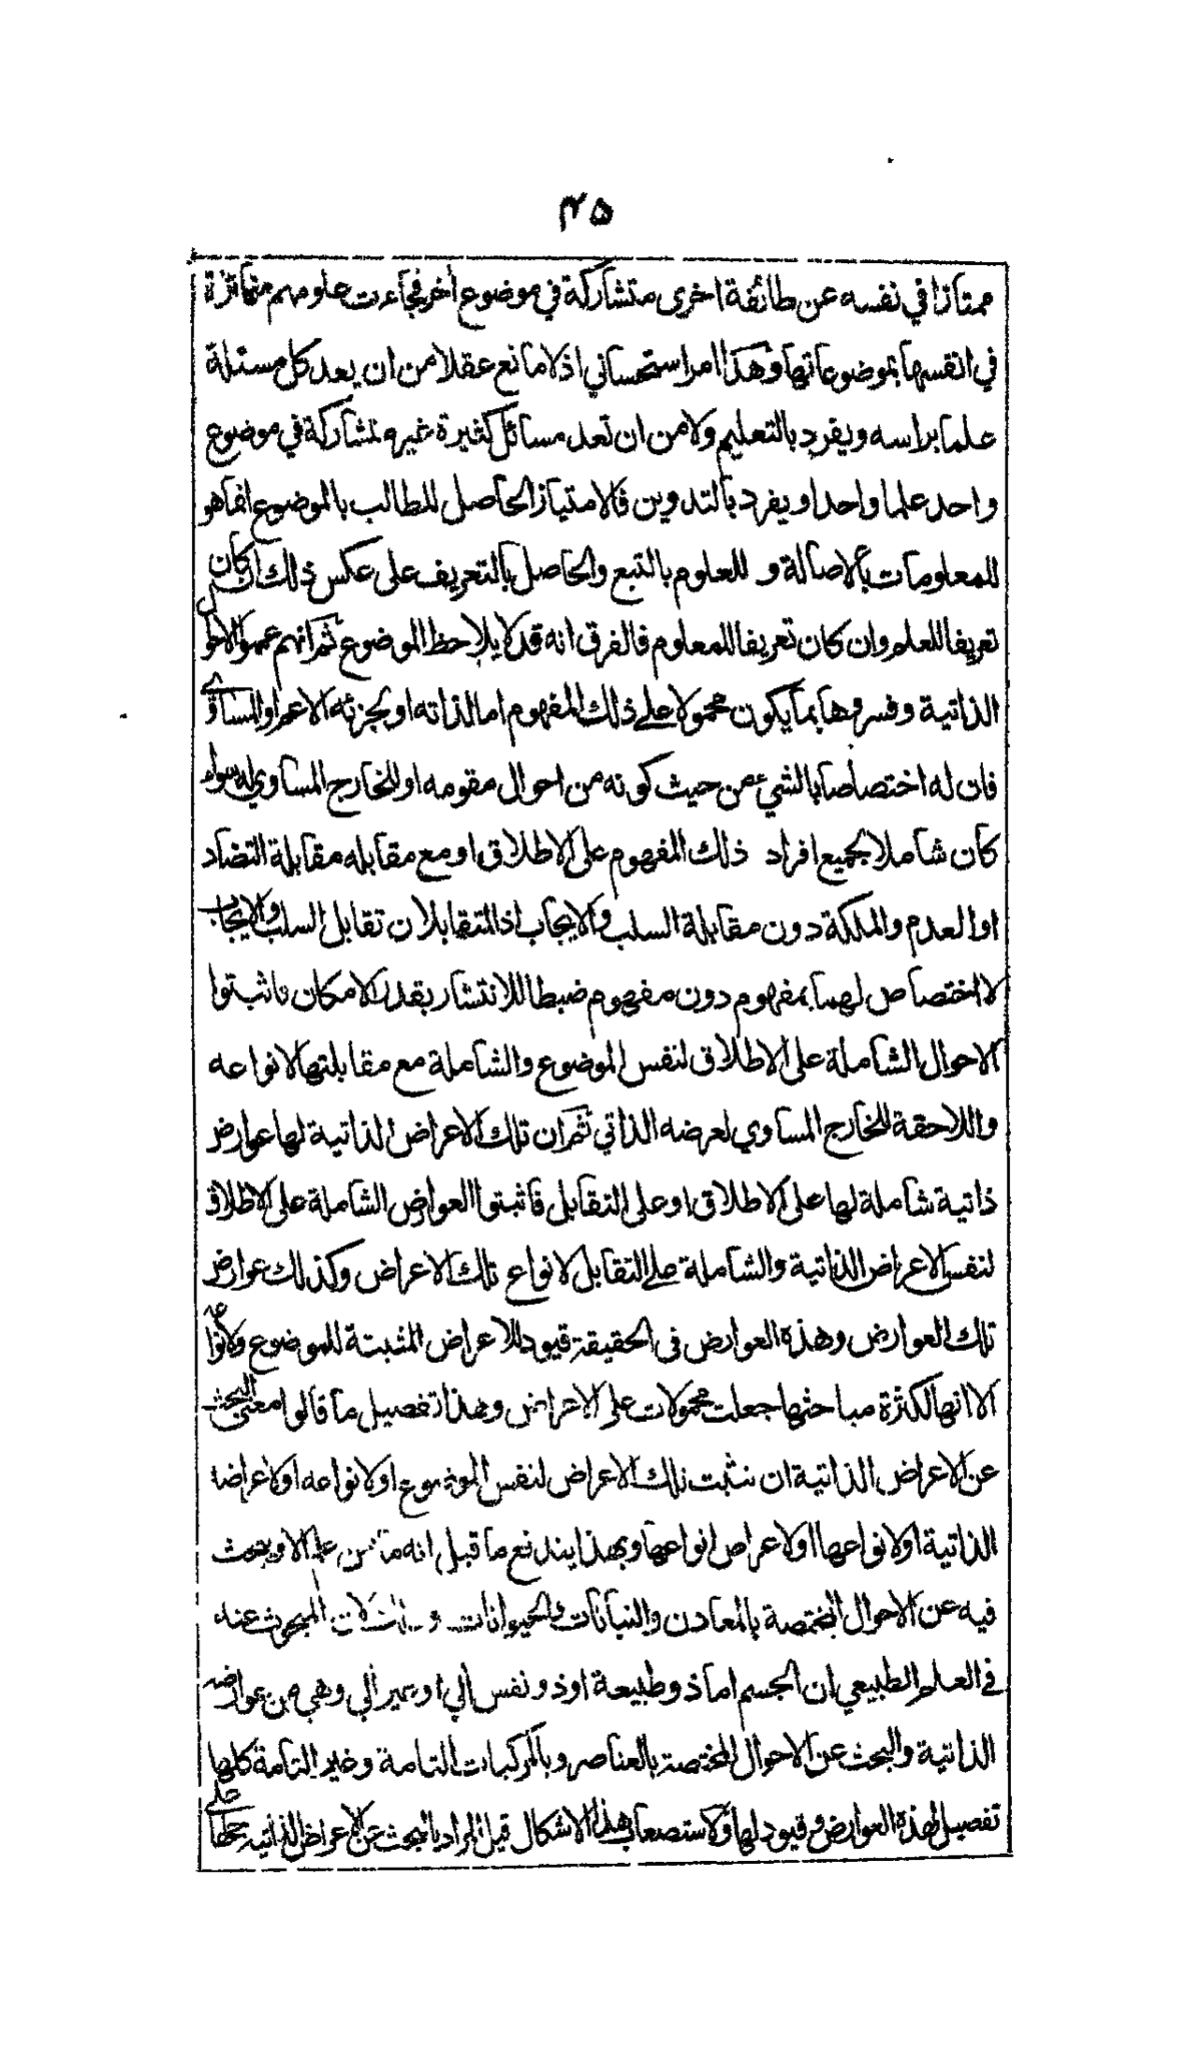 ٤٥
ممتازا في نفسه عن طائفة اخرى متشاركة في موضوع أخر فجاءت علومهم متمائزة
في انفسها بموضوعاتها وهذا امر استحساني اذ لا مانع عقلا من ان يعد كل مسئلة
علما براسه ويفرد بالتعليم ولا من ان تعد مسائل كثيرة غير متشاركة في موضوع
واحد علما واحدا ويفرد بالتدوين فالامتياز الحاصل للمطالب بالموضوع انما هو
للمعلومات بالاصالة و للعلوم بالتبع والحاصل بالتعريف على عكس ذلك ان كان
تعريفا للعلم وان كان تعريفا للمعلوم فالفرق انه قد لا يلاحظ الموضوع ثم انهم عمموا الاحوال
الذاتية وفسروها بما يكون محمولا على ذلك المفهوم اما لذاته او بجزئه الاعم او المساوي
فان له اختصاصا بالشيء من حيث كونه من احوال مقومه او للخارج المساوي له سواء
كان شاملا لجميع افراد ذلك المفهوم على الاطلاق او مع مقابله مقابلة التضاد
او العدم والملكة دون مقابلة السلب والايجاب اذ المتقابلان تقابل السلب والايجاب
لا اختصاص لهما بمفهوم دون مفهوم ضبطا للانتشار بقدر الامكان فاثبتوا
الاحوال الشاملة على الاطلاق لنفس الموضوع والشاملة مع مقابلتها لانواعه
واللاحقة للخارج المساوي لعرضه الذاتي ثم ان تلك الاعراض الذاتية لها عوارض
ذاتية شاملة لها على الاطلاق او على التقابل فاثبتوا العوارض الشاملة على الاطلاق
لنفس الاعراض الذاتية والشاملة على التقابل لانواع تلك الاعراض وكذلك عوارض
تلك العوارض وهذه العوارض فى الحقيقة قيود للاعراض المثبتة للموضوع ولانواعه
الا انها لكثرة مباحثها جعلت محمولات على الاعراض وهذا تفصيل ما قالوا معنى البحث
عن الاعراض الذاتية ان نثبت تلك الاعراض لنفس الموضوع او لانواعه او لاعراضه
الذاتية او لانواعها او لاعراض انواعها وبهذا يندفع ما قيل انه ما من علم الا ويبحث
فيه عن الاحوال المختصة بالمعادن والنباتات والحيوانات و المبحوث عنه
فى العلم الطبيعي ان الجسم اما ذو طبيعة او ذو نفس ألي او غير ألي وهي من عوارضه
الذاتية والبحث عن الاحوال المختصة بالعناصر وبالمركبات التامة وغير التامة كلها
تفصيل لهذه العوارض وقيود لها ولاستصعاب هذا الاشكال قيل المراد بالبحث عن الاعراض الذاتية حملها على